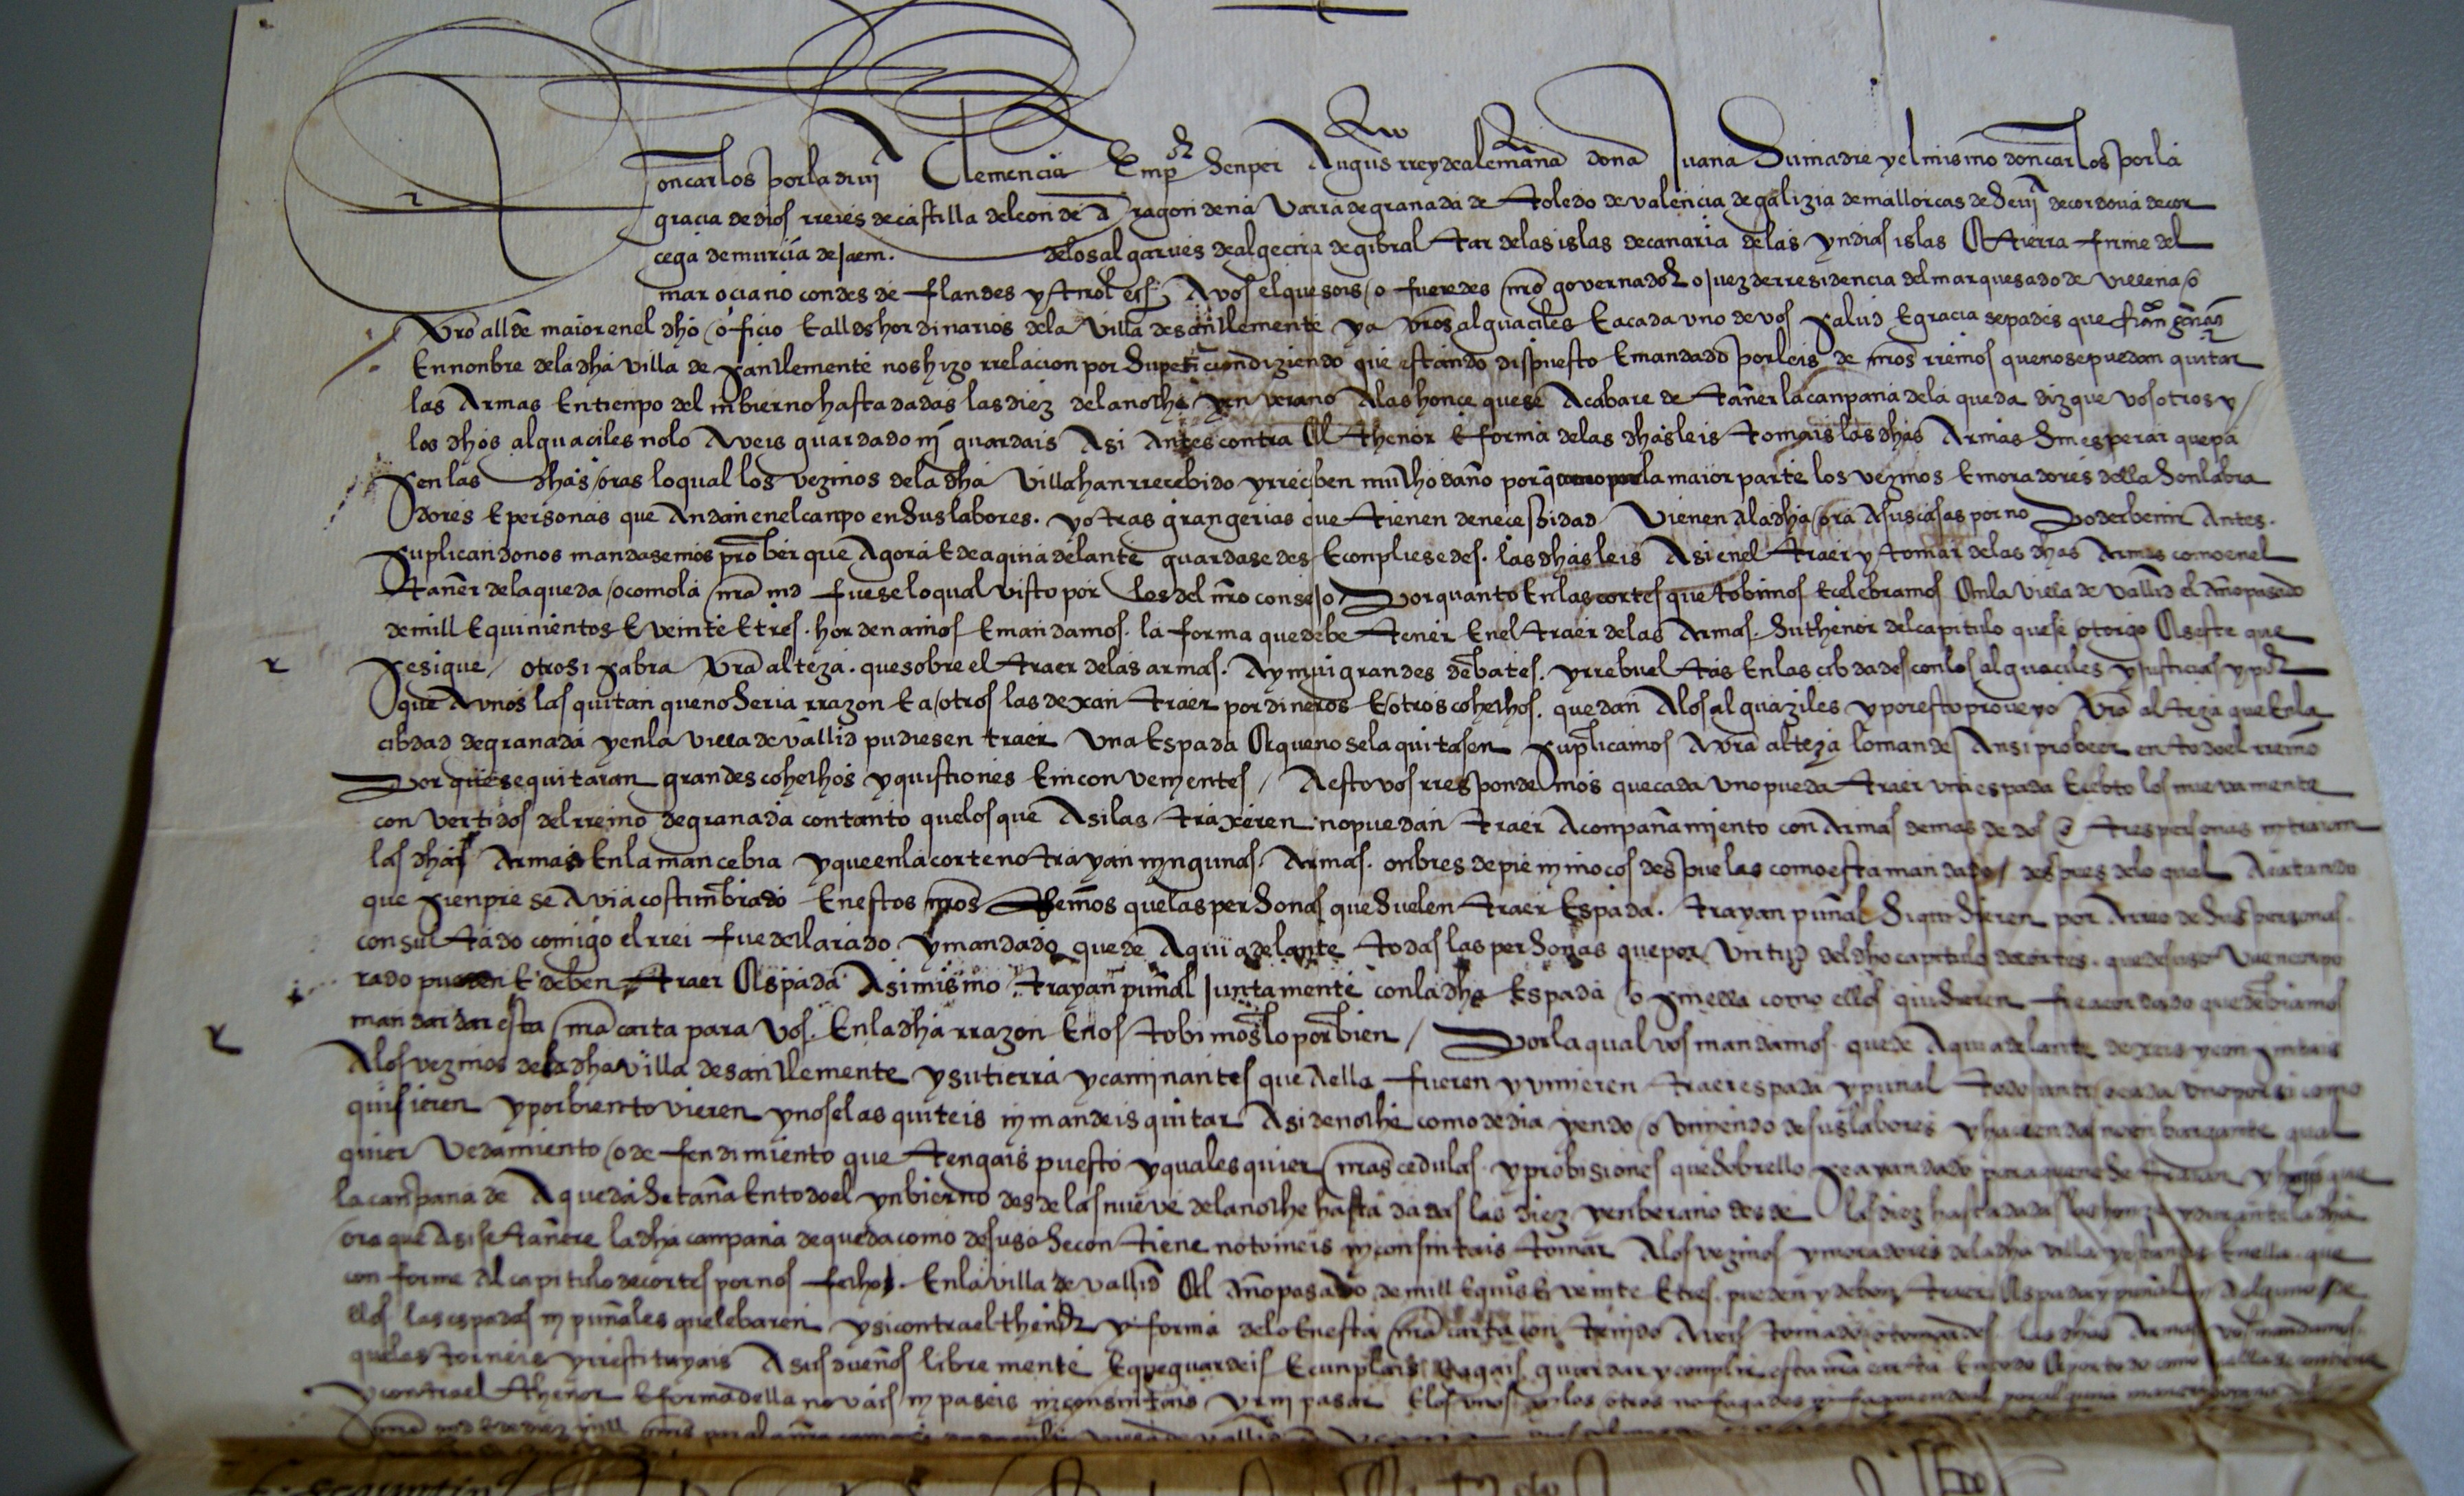 Don carlos por la divi clemencia Emp senper Augus rrey de alemana dona Juana su madre y el mismo don carlos por la
gracia de dios rreies de castilla de leon de Aragon de na varra de granada de toledo de valencia de galizia de mallorcas de sevj de cordova de cor
cega de murcia de jaem. de los algarves de algecira de gibraltar de las islas de canaria de las yndias islas E tierra firme del
mar ociano condes de flandes y tirol ets. A vos el que sois / o fueredes nro governador o juez de rresidencia del marquesado de villena / o
vro allde maior en el dho / oficio E alldes hordinarios de la villa de sanclemente y a vros alguaciles E a cada uno de vos salud E gracia sepades que
En nonbre de la dha villa de sanclemente nos hizo rrelacion por su peticion diziendo que estando dispuesto E mandado por leis de nros rreinos que no se puedan quitar
las Armas En tienpo del inbierno hasta dadas las diez de la noche y en verano A las honce que se Acabare de tañer la canpana de la queda diz que vosotros y /
los dhos alguaciles no lo Aveis guardado nj guardais Asi Antes contra El thenor E forma de las dhas leis tomais las dhas Armas sin esperar que pa
sen las dhas / oras lo qual los vezinos de la dha villa han rrecebido y rreciben mucho daño porq como por la maior parte los vezinos E moradores della son labra
dores E personas que Andan en el canpo en sus labores. y otras grangerias que tienen de necessidad vienen a la dha / ora A sus casas por no poder benir Antes.
suplicandonos mandasemos prober que Agora E de aqui adelante guardasedes E conpliesedes. las dhas leis Asi en el traer y tomar de las dhas Armas como en el
tañer de la queda / o como la nra md fuese lo qual visto por los del nro consejo / Por quanto En las cortes que tobimos E celebramos En la villa de vallid el Año pasado
de mill E quinientos E veinte E tres. hordenamos E mandamos. la forma que debe tener En el traer de las Armas. su thenor del capitulo que se / otorgo Es este que
se sigue / otrosi sabra vra alteza. que sobre el traer de las armas. Ay mui grandes debates. y rrebueltas En las cibdades con los alguaciles y justicias y
que A unos las quitan que no seria rrazon E a / otros las dexan traer por dineros E / otros cohechos. que dan A los alguaziles y por esto proveyo vra alteza que En la
cibdad de granada y en la villa de vallid pudiesen traer una Espada E que no se la quitasen suplicamos A vra alteza lo mande Ansi probeer en todo el rreino
Por que se quitaran grandes cohechos y quistiones E inconvenientes / A esto vos rrespondemos que cada uno pueda traer una espada Ecebto los nuevamente
convertidos del rreino de granada con tanto que los que Asi las traxeren no puedan traer Aconpañamiento con Armas demas de dos o tres personas ni traian
las dhas Armas En la mancebia y que en la corte no trayan nyngunas Armas. onbres de pie ni mocos despuelas como esta mandado / despues de lo qual Acatando
que sienpre se Avia costumbrado En estos nros Reinos que las personas que suelen traer Espada. trayan puñal si quisieren por Arreo de sus personas.
consultado comigo el rrei fue declarado y mandado que de Aqui adelante todas las personas que por virtud del dho capitulo de cortes. que de suso va encorpo
rado pueden E deben traer Espada Asimismo trayan puñal juntamente con la dha Espada / o sin ella como ellos quisieren fue acordado que debiamos
mandar dar esta nra carta para vos. En la dha rrazon E nos tobimoslo por bien / Por la qual vos mandamos. que de Aqui adelante dexeis y consintais
A los vezinos de la dha villa de sanclemente y su tierra y caminantes que A ella fueren y vinieren traer espada y puñal todo junto / o cada uno por si como
quisieren y por bien tovieren y no se las quiteis ni mandeis quitar Asi de noche como de dia yendo / o viniendo de sus labores y haziendas no enbargante qual
quier vedamiento / o defendimiento que tengais puesto y qualesquier nras cedulas y probisiones que sobrello se ayan dado para que no se traian y
la canpana de A queda se taña En todo el ynbierno desde las nueve de la noche hasta dadas las diez y en berano desde las diez hasta dadas las honze y durante la dha
ora que Asi se tañere la dha campana de queda como de suso se contiene no tomeis ni consintais tomar A los vezinos y moradores de la dha villa y estantes En ella que
conforme al capitulo de cortes por nos fechos. En la villa de vallid El Año pasado de mill E quis E veinte E tres. pueden y deben traer Espada y puñal A alguno de
ellos las espadas ni puñales que lebaren y si contra el thenor y forma de lo En esta nra carta contenido Aveis tomado o tomardes las dhas Armas vos mandamos
que las torneis y rrestituyais A sus dueños libremente E que guardeis E cunplais E hagais guardar y complir esta nra carta En todo E por todo como en ella se contiene
y contra el thenor E forma della no vais ni paseis ni consintais yr ni pasar E los unos ni los otros no fagades ni fagan ende al por alguna manera so pena de la
nra md E de diez mill mrs para la nra camara dada en la villa de vallid